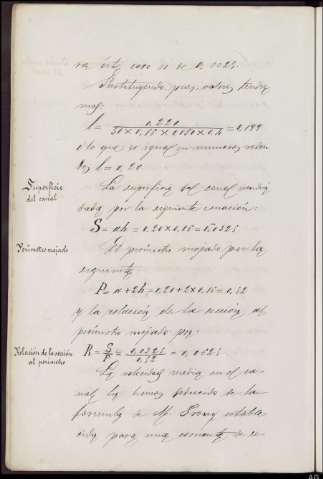 ra este caso es de 0,0025.
Sustituyendo pues, valores tendre
mos
l = 0,220 / 50 × 0,15 × 0,4 = 0,199
o lo que es igual en numeros redon
dos l = 0,20
Superficie
del canal
La superficie del canal vendrá
dada por la siguiente ecuación:
S = ah = 0,20 × 0,15 = 0,0325
Perimetro mojado
El perimetro mojado por la
siguiente
P = a + 2h = 0,20 + 2 × 0,15 = 0,52
y la relación de la sección al
perimetro mojado por:
Relación de la sección
al perimetro
R = S/P = 0,0325/0,52 = 0,0625
La velocidad media en el ca
nal la hemos deducido de la
formula de M. Prony estable
cida para una corriente de